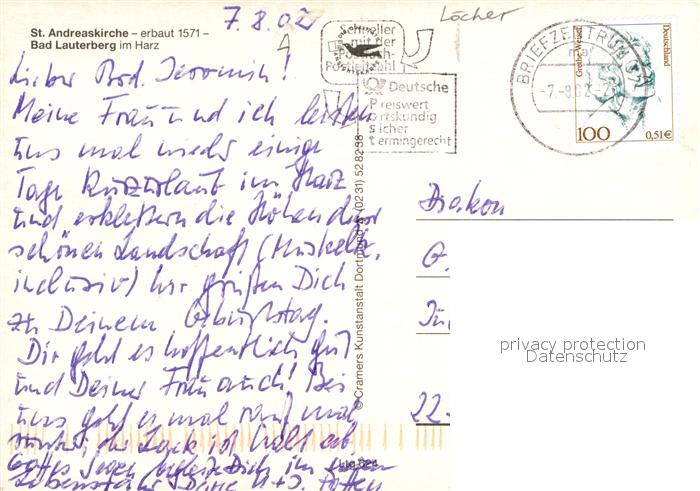 7.8.02
Löcher
St. Andreaskirche – erbaut 1571 –
Bad Lauterberg im Harz
Schneller
mit der
Postleitzahl
BRIEFZENTRUM
-7.-8.02-
Grethe Weiser
Deutschland
100
0,51€
Deutsche
Preiswert
ortskundig
sicher
termingerecht
Lieber Brd. Jeromin!
Meine Frau und ich leisten
uns mal wieder einige
Tage Kurzurlaub im Harz
und erklettern die Höhen dieser
schönen Landschaft (Muskelk.
inclusiv) Wir grüßen Dich
zu Deinem Geburtstag.
Dir geht es hoffentlich gut
und Deiner Frau auch! Bei
uns geht es mal rauf mal
runter, der Lack ist halt ab
Gottes Segen begleite Dich im
© Cramers Kunstanstalt Dortmund (0231) 528238
Diakon
G.
22
privacy protection
Datenschutz